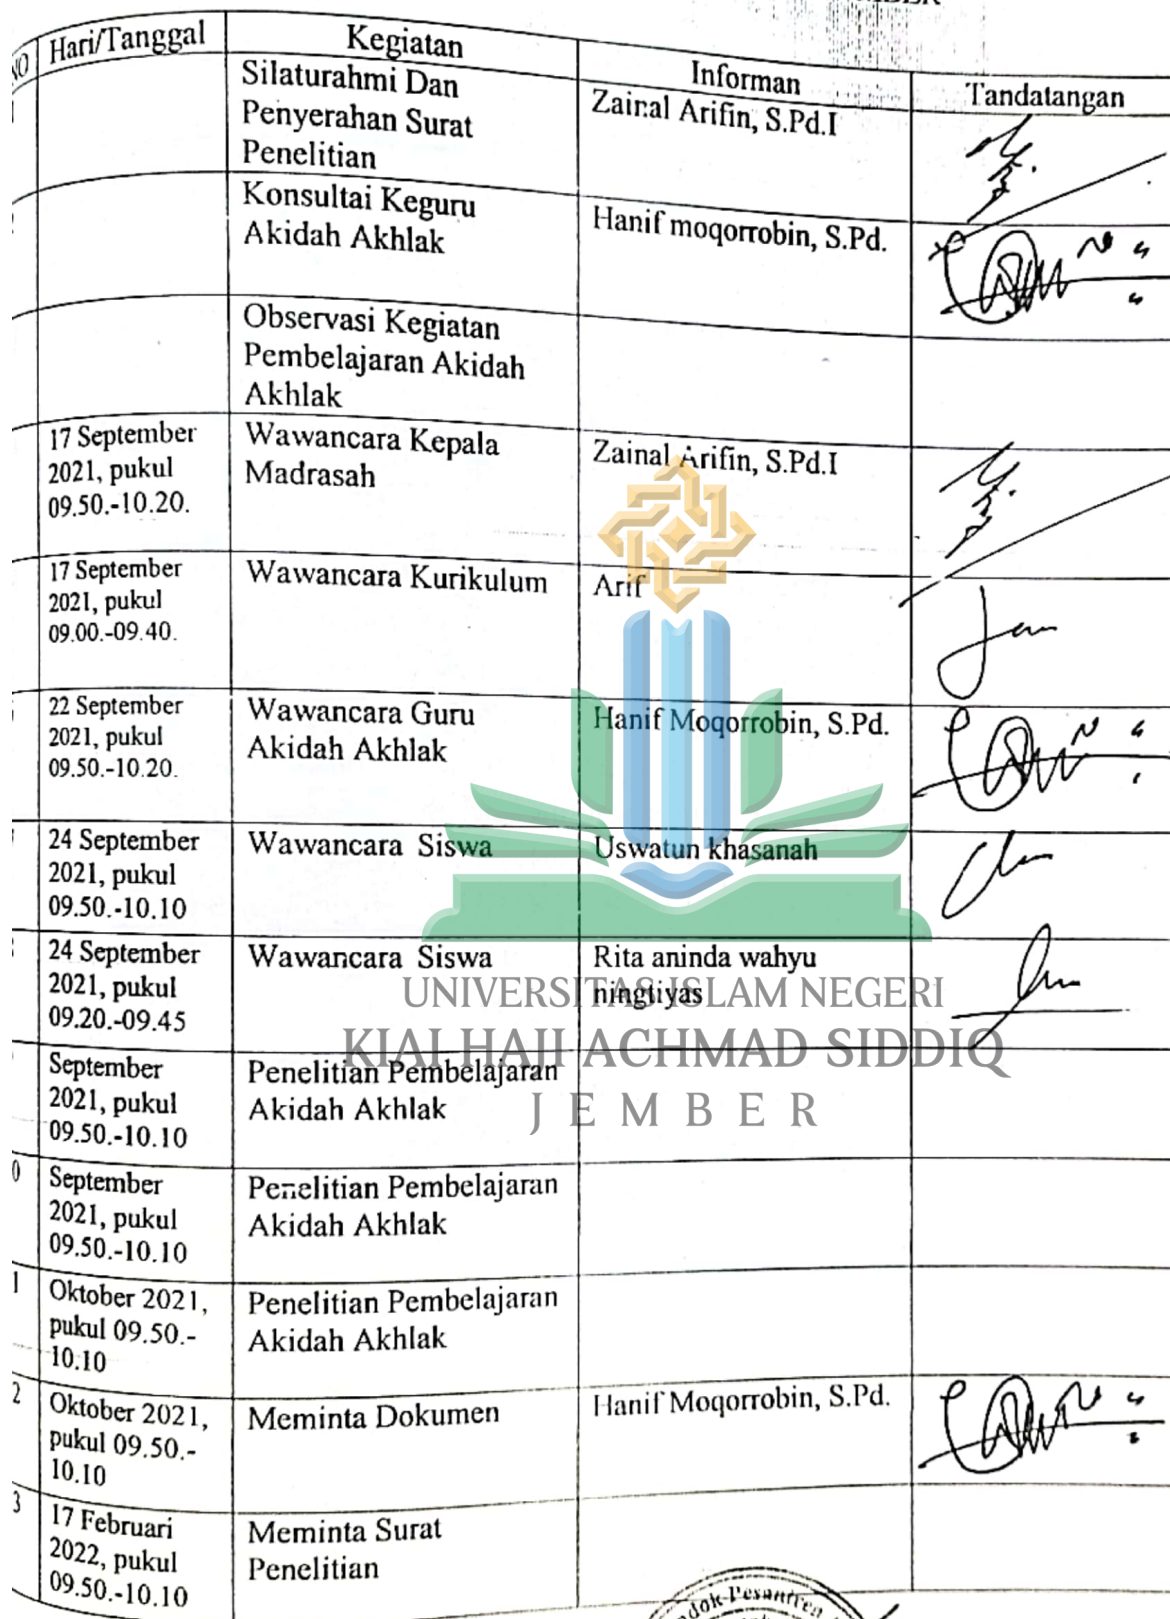 NO Hari/Tanggal Kegiatan Informan Tandatangan
Silaturahmi Dan
Penyerahan Surat
Penelitian
Zainal Arifin, S.Pd.I
Konsultai Keguru
Akidah Akhlak
Hanif moqorrobin, S.Pd.
Observasi Kegiatan
Pembelajaran Akidah
Akhlak
17 September
2021, pukul
09.50.-10.20.
Wawancara Kepala
Madrasah
Zainal Arifin, S.Pd.I
17 September
2021, pukul
09.00.-09.40.
Wawancara Kurikulum
Arif
22 September
2021, pukul
09.50.-10.20.
Wawancara Guru
Akidah Akhlak
Hanif Moqorrobin, S.Pd.
24 September
2021, pukul
09.50.-10.10
Wawancara Siswa
Uswatun khasanah
24 September
2021, pukul
09.20.-09.45
Wawancara Siswa
Rita aninda wahyu
ningtiyas
UNIVERSITAS ISLAM NEGERI
KIAI HAJI ACHMAD SIDDIQ
JEMBER
September
2021, pukul
09.50.-10.10
Penelitian Pembelajaran
Akidah Akhlak
0
September
2021, pukul
09.50.-10.10
Penelitian Pembelajaran
Akidah Akhlak
1
Oktober 2021,
pukul 09.50.-
10.10
Penelitian Pembelajaran
Akidah Akhlak
2
Oktober 2021,
pukul 09.50.-
10.10
Meminta Dokumen
Hanif Moqorrobin, S.Pd.
3
17 Februari
2022, pukul
09.50.-10.10
Meminta Surat
Penelitian